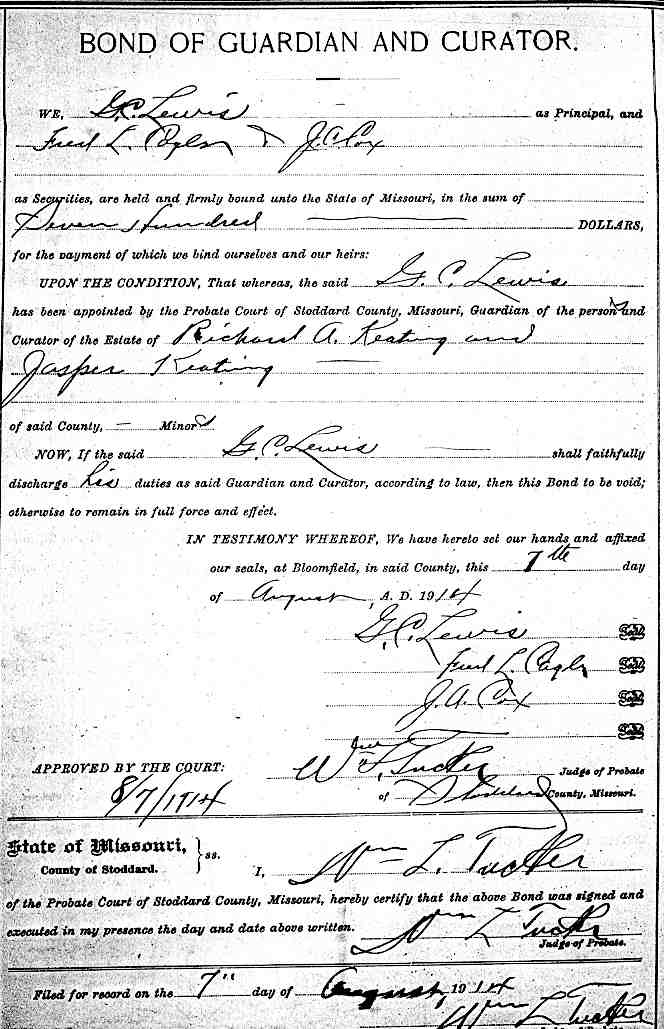 BOND OF GUARDIAN AND CURATOR.
WE, G. C. Lewis as Principal, and
Fred L. & J. A. Cox
as Securities, are held and firmly bound unto the State of Missouri, in the sum of
Seven Hundred DOLLARS,
for the payment of which we bind ourselves and our heirs:
UPON THE CONDITION, That whereas, the said G. C. Lewis
has been appointed by the Probate Court of Stoddard County, Missouri, Guardian of the persons and
Curator of the Estate of Richard A. Keating and
Jasper Keating
of said County, — Minors
NOW, If the said G. C. Lewis shall faithfully
discharge his duties as said Guardian and Curator, according to law, then this Bond to be void;
otherwise to remain in full force and effect.
IN TESTIMONY WHEREOF, We have hereto set our hands and affixed
our seals, at Bloomfield, in said County, this 7th day
of August, A. D. 1914
G. C. Lewis Seal
Fred L. Seal
J. A. Cox Seal
Seal
APPROVED BY THE COURT: Wm L. Tucker Judge of Probate
8/7/1914 of Stoddard County, Missouri.
State of Missouri, } ss.
County of Stoddard. I, Wm L. Tucker
of the Probate Court of Stoddard County, Missouri, hereby certify that the above Bond was signed and
executed in my presence the day and date above written. Wm L Tucker
Judge of Probate.
Filed for record on the 7" day of August, 1914
Wm L Tucker